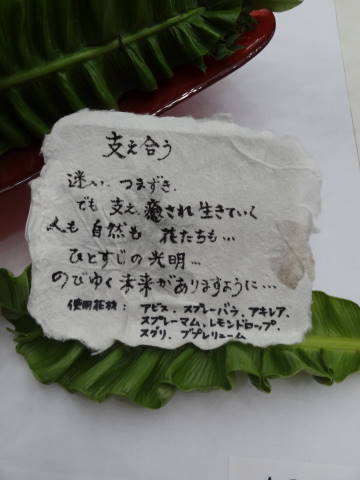 支え合う
迷い、つまずき、
でも 支え、癒され 生きていく
人も 自然も 花たちも…
ひとすじの光明…
のびゆく未来がありますように…
使用花材： アビス、スプレーバラ、アキレア、
スプレーマム、レモンドロップ、
スグリ、ブプレリューム